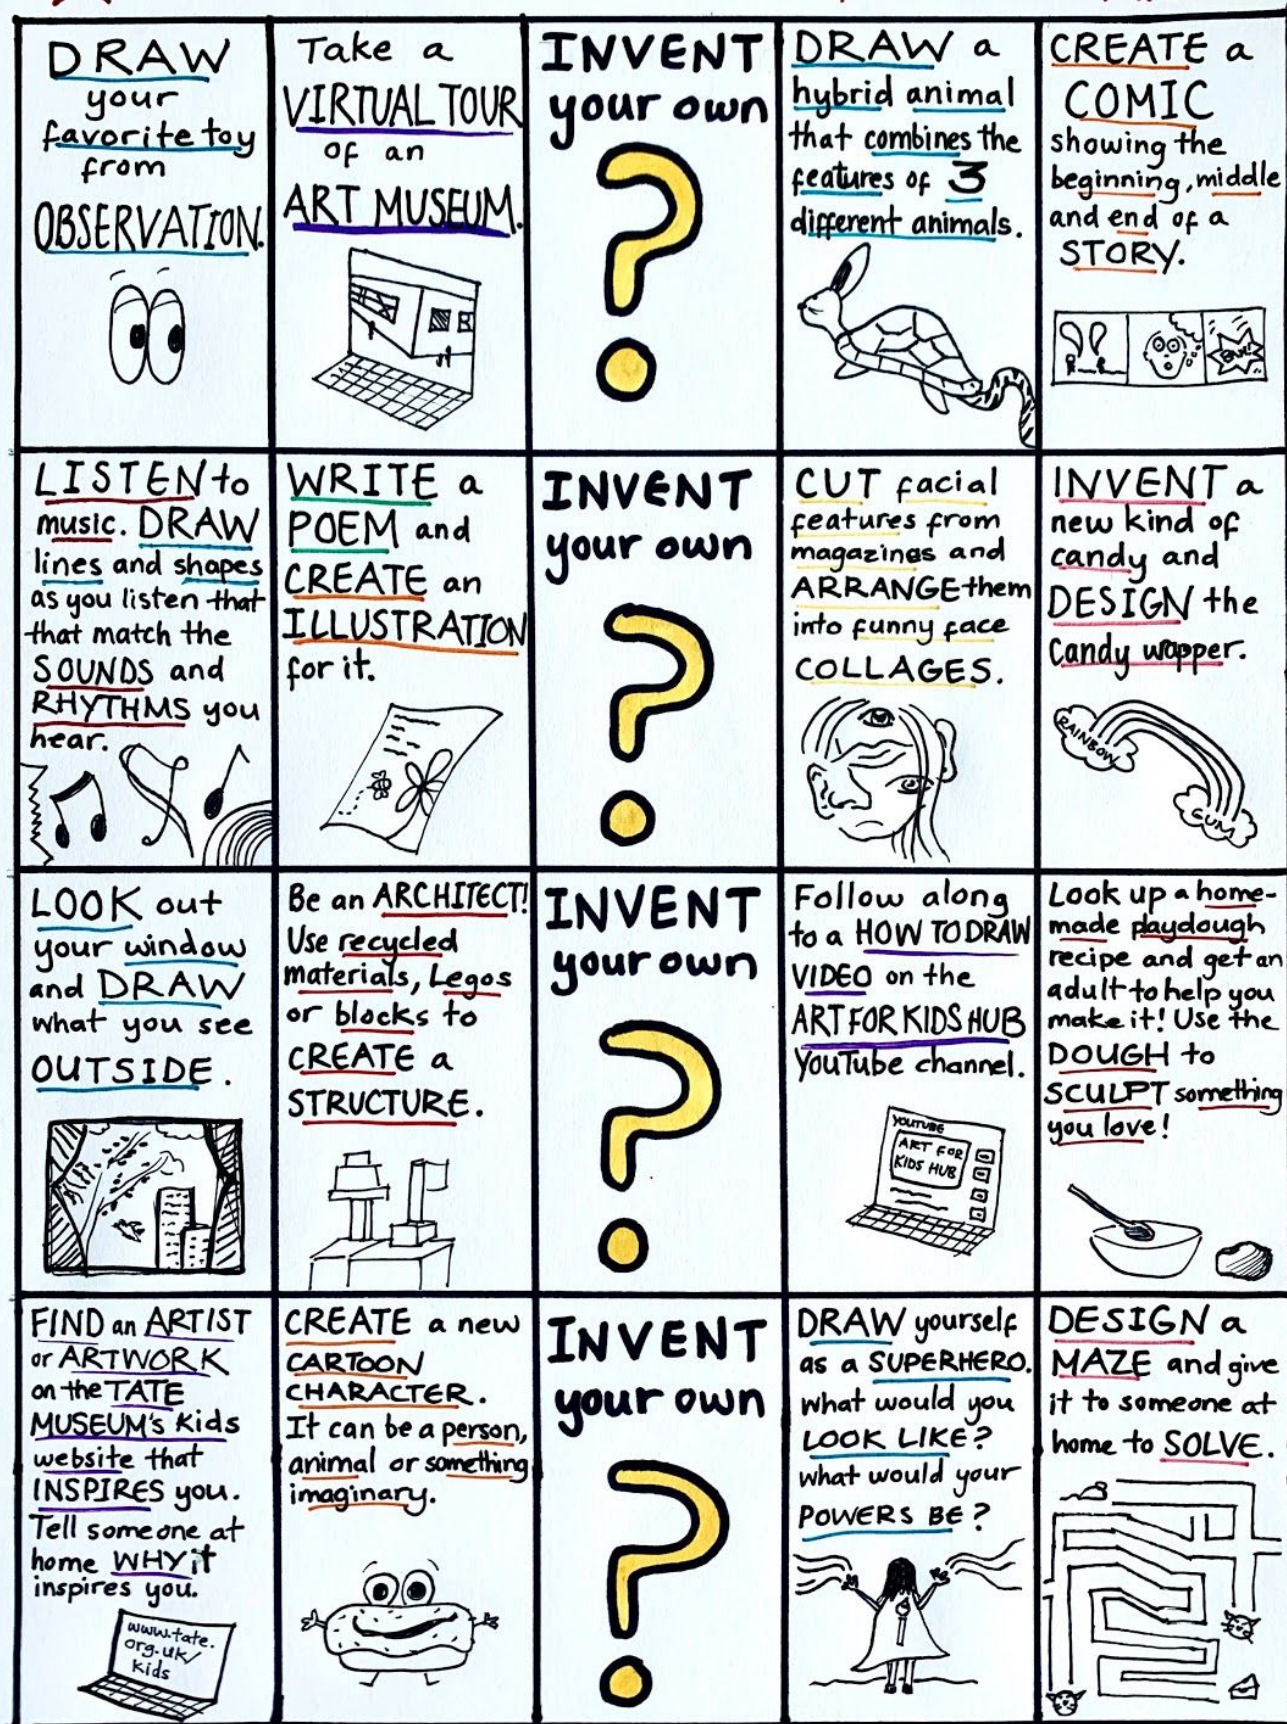 DRAW
your
favorite toy
from
OBSERVATION.
Take a
VIRTUAL TOUR
of an
ART MUSEUM.
INVENT
your own
?
DRAW a
hybrid animal
that combines the
features of 3
different animals.
CREATE a
COMIC
showing the
beginning, middle
and end of a
STORY.
LISTEN to
music. DRAW
lines and shapes
as you listen that
that match the
SOUNDS and
RHYTHMS you
hear.
WRITE a
POEM and
CREATE an
ILLUSTRATION
for it.
INVENT
your own
?
CUT facial
features from
magazines and
ARRANGE them
into funny face
COLLAGES.
INVENT a
new kind of
candy and
DESIGN the
candy wapper.
RAINBOW
GUM
LOOK out
your window
and DRAW
what you see
OUTSIDE.
Be an ARCHITECT!
Use recycled
materials, Legos
or blocks to
CREATE a
STRUCTURE.
INVENT
your own
?
Follow along
to a HOW TO DRAW
VIDEO on the
ART FOR KIDS HUB
YouTube channel.
YOUTUBE
ART FOR
KIDS HUB
Look up a home-
made playdough
recipe and get an
adult to help you
make it! Use the
DOUGH to
SCULPT something
you love!
FIND an ARTIST
or ARTWORK
on the TATE
MUSEUM's Kids
website that
INSPIRES you.
Tell someone at
home WHY it
inspires you.
www.tate.
org.uk/
kids
CREATE a new
CARTOON
CHARACTER.
It can be a person,
animal or something
imaginary.
INVENT
your own
?
DRAW yourself
as a SUPERHERO.
What would you
LOOK LIKE?
What would your
POWERS BE?
DESIGN a
MAZE and give
it to someone at
home to SOLVE.